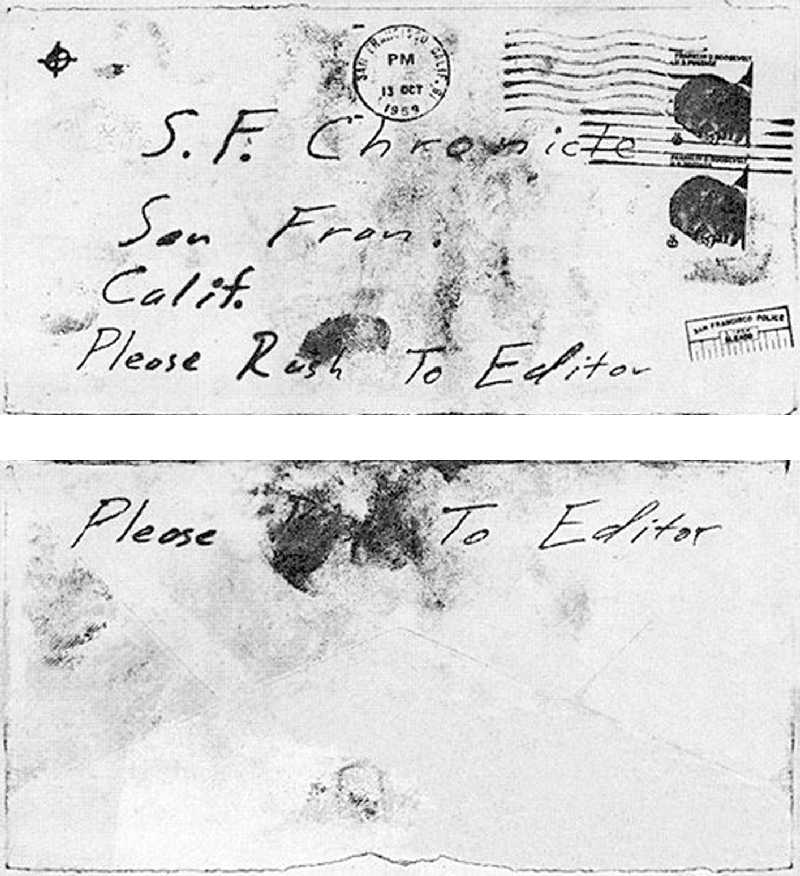 SAN FRANCISCO, CALIF.
PM
13 OCT
1969
FRANKLIN D. ROOSEVELT
U.S. POSTAGE
S.F. Chronicle
FRANKLIN D. ROOSEVELT
San Fran.
Calif.
SAN FRANCISCO POLICE
Please Rush To Editor
Please To Editor